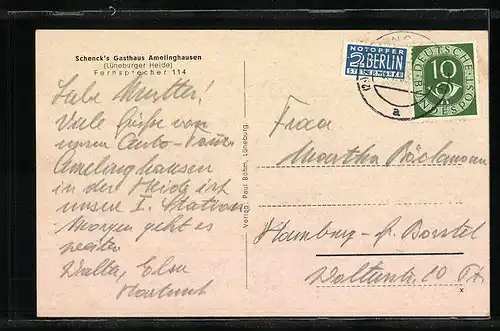 Schenck's Gasthaus Amelinghausen
(Lüneburger Heide)
Fernsprecher 114
Liebe Mutter!
Viele Grüße von
unserer Auto-Tour.
Amelinghausen
in der Heide ist
unsere I. Station
Morgen geht es
weiter
Walter, Elsa
Hartmut
Verlag: Paul Böhm, Lüneburg.
NOTOPFER
2 BERLIN
STEUERMARKE
DEUTSCHE
BUNDESPOST
10
a
Frau
Martha Bäckmann
Hamburg - gr. Borstel
x